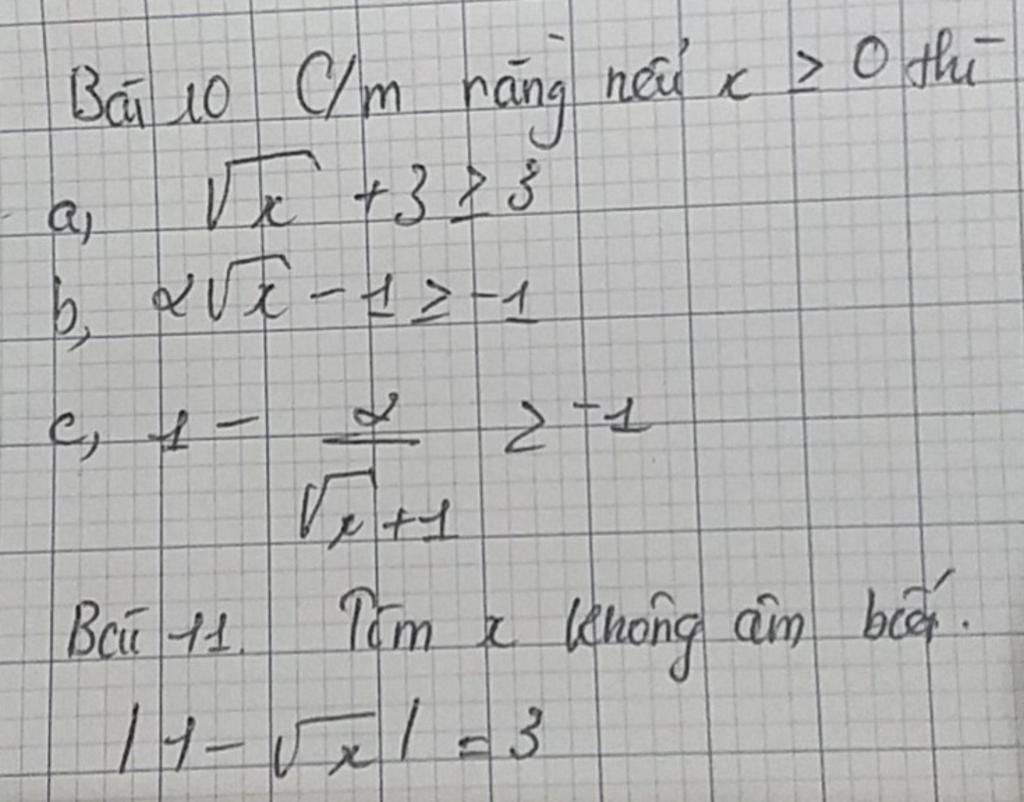 Bài 10 C/m rằng nếu x ≥ 0 thì
a, √x + 3 ≥ 3
b, 2√x - 1 ≥ -1
c, 1 - 2/(√x + 1) ≥ -1
Bài 11. Tìm x không âm biết.
|1 - √x| = 3